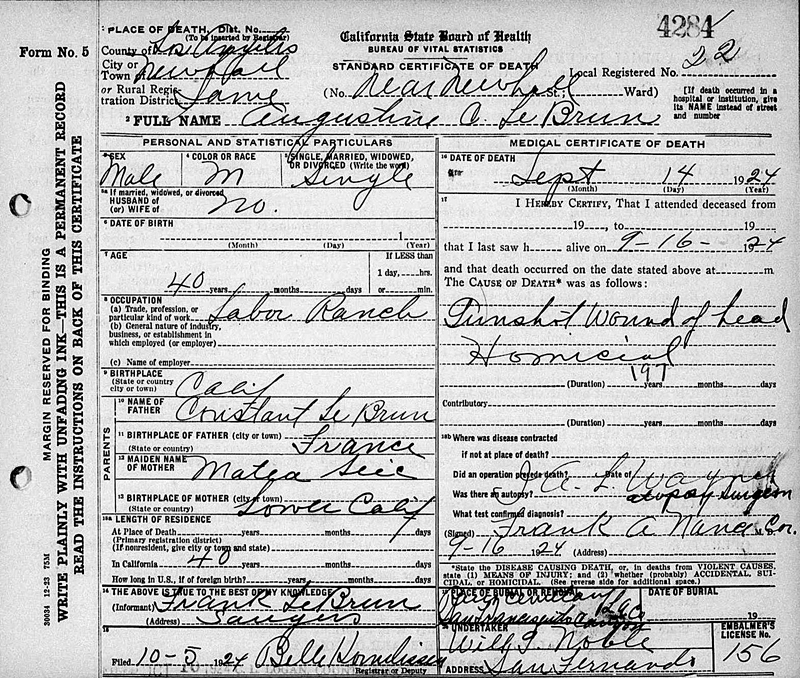 4284
Form No. 5
MARGIN RESERVED FOR BINDING
WRITE PLAINLY WITH UNFADING INK—THIS IS A PERMANENT RECORD
READ THE INSTRUCTIONS ON BACK OF THIS CERTIFICATE
30034 12-23 75M
PLACE OF DEATH, Dist. No.
(To be inserted by Registrar)
County of Los Angeles
City or
Town Newhall
or Rural Registration District Same
California State Board of Health
BUREAU OF VITAL STATISTICS
STANDARD CERTIFICATE OF DEATH
Local Registered No. 22
(No. Near Newhall St.; Ward)
[If death occurred in a hospital or institution, give its NAME instead of street and number
2 FULL NAME Augustine C. Le Brun
PERSONAL AND STATISTICAL PARTICULARS
3 SEX
Male
4 COLOR OR RACE
M
5 SINGLE, MARRIED, WIDOWED, OR DIVORCED (Write the word)
Single
5a If married, widowed, or divorced
HUSBAND of
(or) WIFE of No.
6 DATE OF BIRTH
1
(Month) (Day) (Year)
7 AGE
40 years months days
If LESS than
1 day, hrs.
or min.
8 OCCUPATION
(a) Trade, profession, or
particular kind of work Labor Ranch
(b) General nature of industry,
business, or establishment in
which employed (or employer)
(c) Name of employer
9 BIRTHPLACE
(State or country
city or town) Calif
PARENTS
10 NAME OF
FATHER Constant Le Brun
11 BIRTHPLACE OF FATHER (city or town)
(State or country) France
12 MAIDEN NAME
OF MOTHER Matea
13 BIRTHPLACE OF MOTHER (city or town)
(State or country) Lower Calif
13a LENGTH OF RESIDENCE
At Place of Death years months days
(Primary registration district)
(If nonresident, give city or town and state)
In California 40 years months days
How long in U.S., if of foreign birth? years months days
14 THE ABOVE IS TRUE TO THE BEST OF MY KNOWLEDGE
(Informant) Frank LeBrun
(Address) Saugus
15
Filed 10-5 1924 Belle Kornelissen
Registrar or Deputy
L. LOGAN, COUNTY
MEDICAL CERTIFICATE OF DEATH
16 DATE OF DEATH
Sept 14 1924
(Month) (Day) (Year)
17
I HEREBY CERTIFY, That I attended deceased from
19 , to 19
that I last saw h alive on 9-16- 1924
and that death occurred on the date stated above at m
The CAUSE OF DEATH* was as follows:
Gunshot Wound of head
Homicial
197
(Duration) years months days
Contributory
(Duration) years months days
18b Where was disease contracted
if not at place of death?
Did an operation precede death? Date of
Was there an autopsy? A. L. Wayne
autopsy surgeon
What test confirmed diagnosis?
(Signed) Frank A. Nance Cor.
9-16 1924 (Address)
*State the DISEASE CAUSING DEATH, or, in deaths from VIOLENT CAUSES, state (1) MEANS OF INJURY; and (2) whether (probably) ACCIDENTAL, SUICIDAL, or HOMICIDAL. (See reverse side for additional space.)
19 PLACE OF BURIAL OR REMOVAL
DATE OF BURIAL
19
20 UNDERTAKER
Will T. Noble
ADDRESS San Fernando
EMBALMER'S
LICENSE No.
156